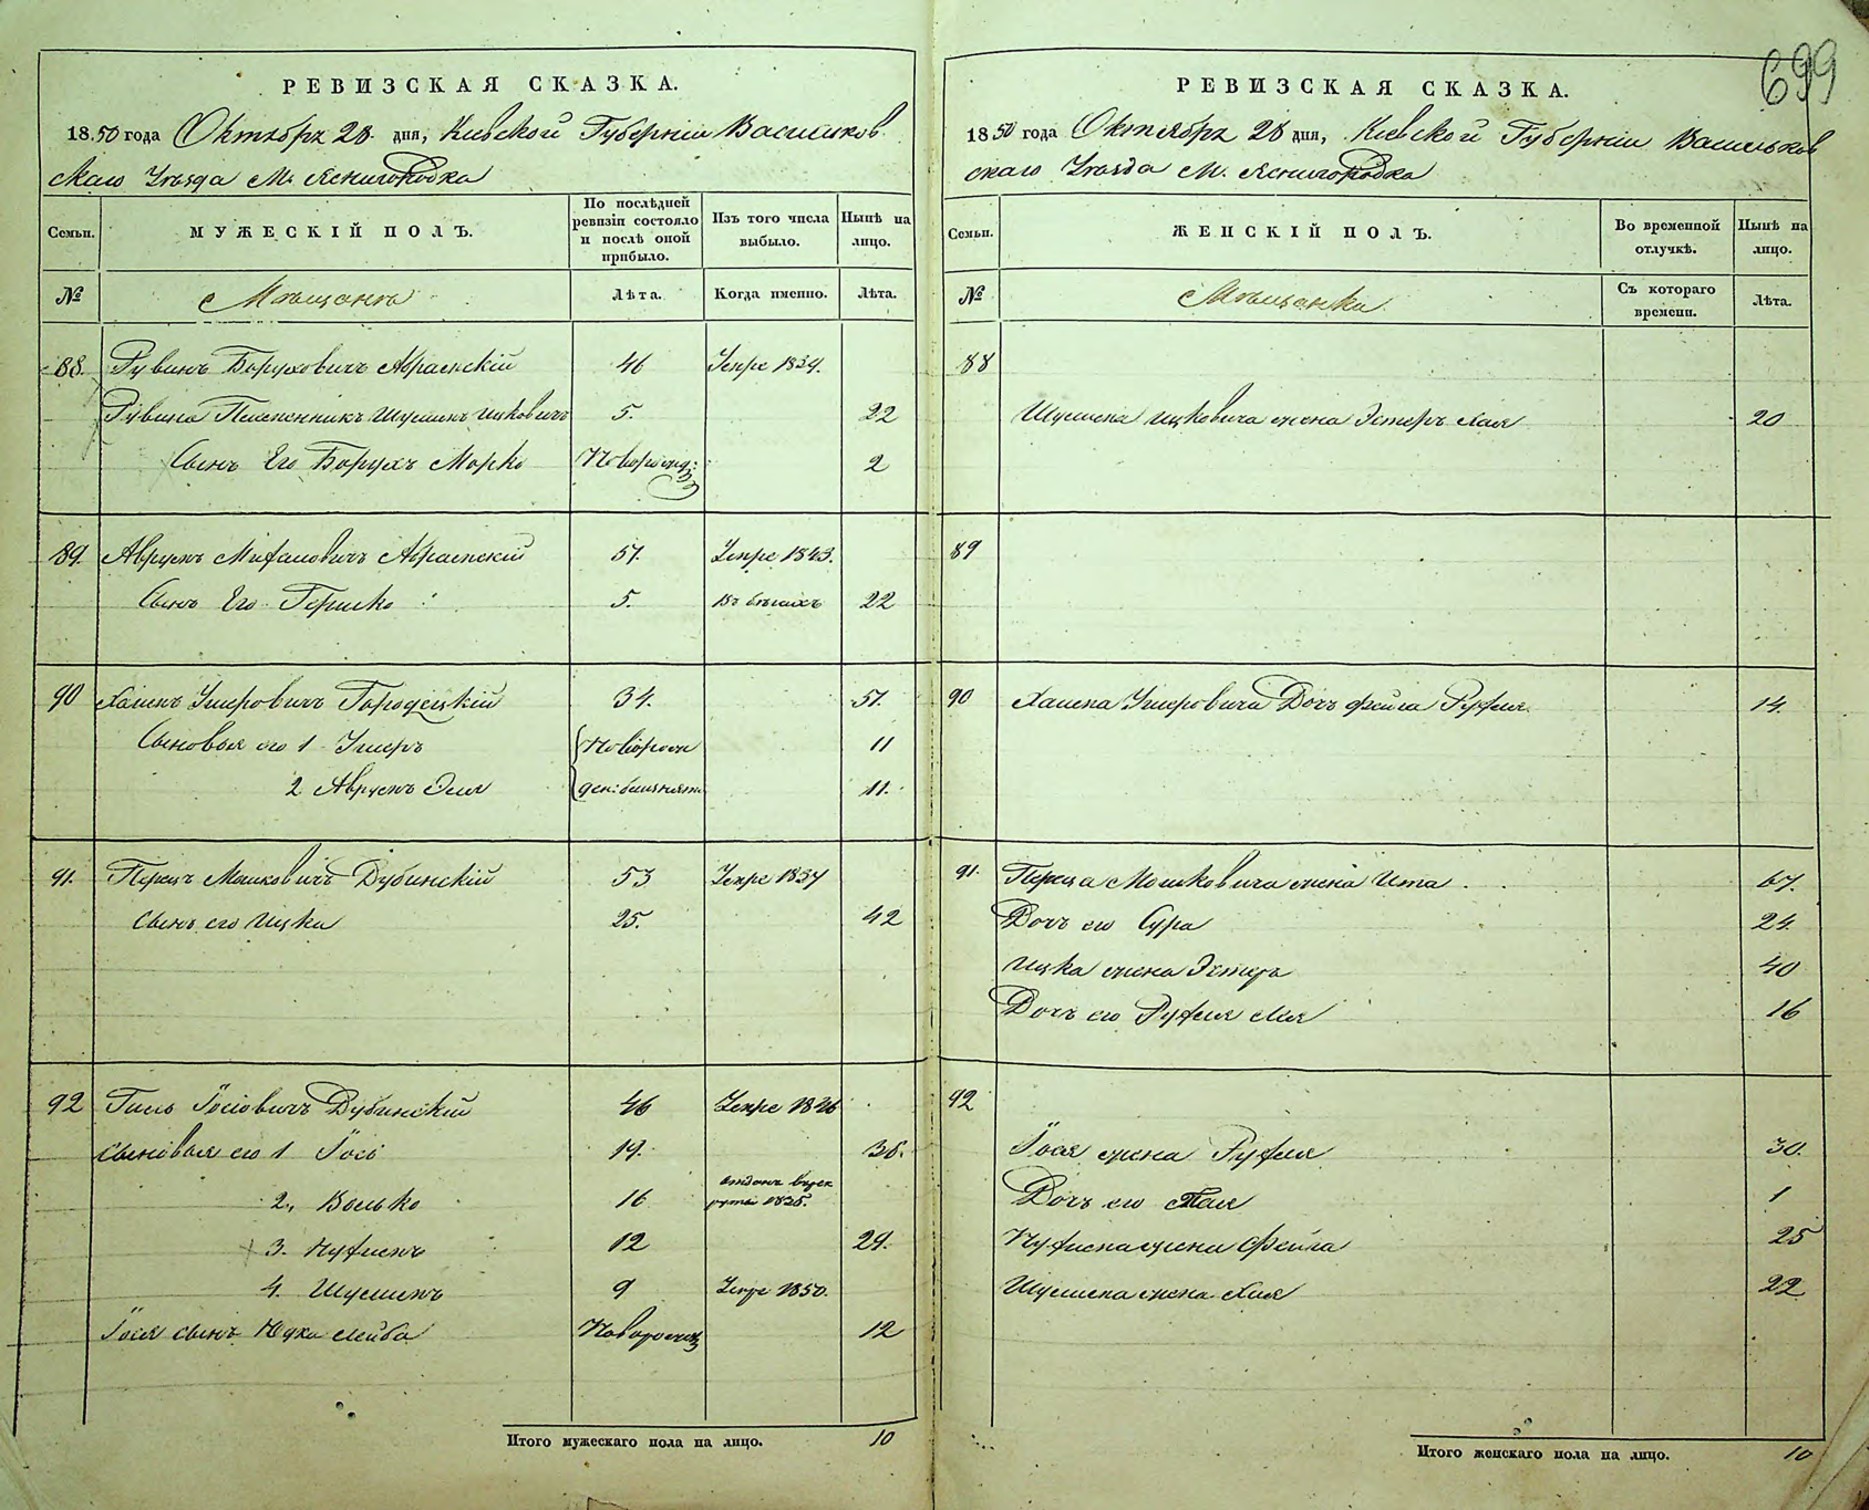 699
РЕВИЗСКАЯ СКАЗКА.
1850 года Октября 28 дня, Кіевской Губерніи Васильков
скаго Уѣзда М. Ясногородка
Семьи. МУЖЕСКІЙ ПОЛЪ. По послѣдней ревизіи состояло и послѣ оной прибыло. Изъ того числа выбыло. Нынѣ на лицо.
№ Мѣщанъ Лѣта. Когда именно. Лѣта.
88. Рувинъ Боруховичъ 46 Умре 1834.
Рувина Племенникъ Шулимъ Ицковичъ 5. 22
Сынъ Его Борухъ Морко Новорожд: 2
89. Аврумъ 57. Умре 1843.
Сынъ Его Гершко 5. Въ бѣгахъ 22
90 Хаимъ Умеровичъ Городецкій 34. 51.
Сыновья его 1 Умеръ Новорож 11
2 Аврумъ Эля ден: близнят. 11.
91. Перецъ Мошковичъ Дубинскій 53 Умре 1837
Сынъ его Ицка 25. 42
92 Іосіовичъ Дубинскій 46 Умре 1836
Сыновья его 1 Іось 19. 36.
2., Волько 16 отданъ врек
руты 1835.
3. Нухимъ 12 29.
4. Шулимъ 9 Умре 1850.
Іося сынъ Юдка Лейба Новорожд 12
Итого мужескаго пола на лицо. 10
РЕВИЗСКАЯ СКАЗКА.
1850 года Октября 28 дня, Кіевской Губерніи Васильков
скаго Уѣзда М. Ясногородка
Семьи. ЖЕНСКІЙ ПОЛЪ. Во временной отлучкѣ. Нынѣ на лицо.
№ Мѣщанки Съ котораго времени. Лѣта.
88
Шулима Ицковича жена Эстеръ Хая 20
89
90 Хаима Умеровича Дочь Фейга Рухля 14.
91. Переца Мошковича жена Ита 67.
Дочь его Сура 24.
Ицка жена Эстеръ 40
Дочь его Рухля Лея 16
92
Іося жена Рухля 30.
Дочь его 1
Нухима жена Фейга 25
Шулима жена Хая 22
Итого женскаго пола на лицо. 10